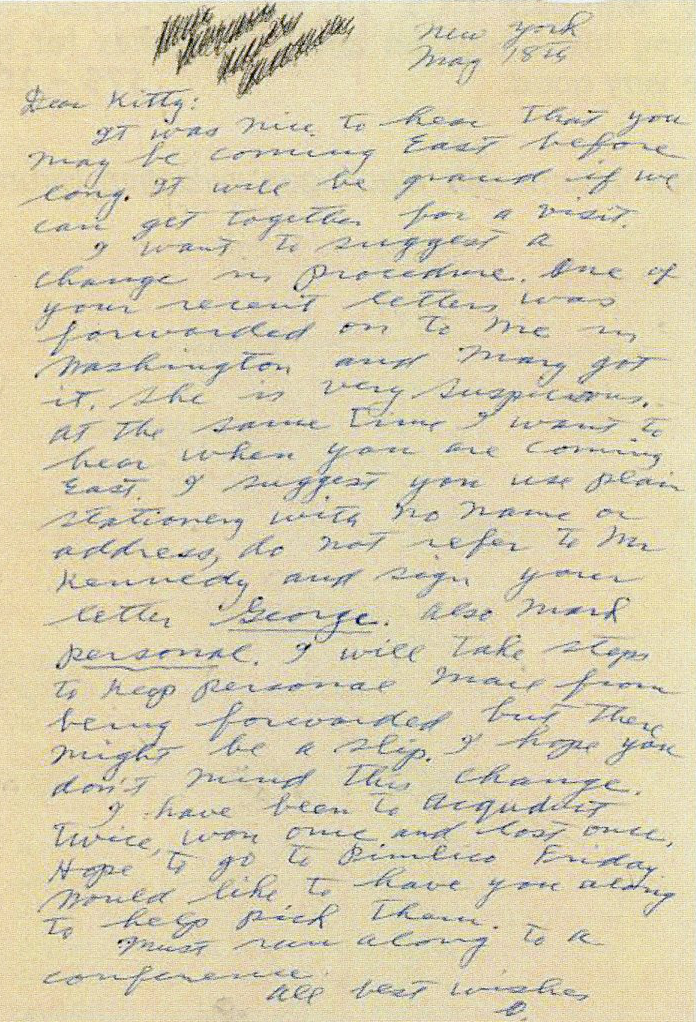 New York
May 18th
Dear Kitty:
It was nice to hear that you
may be coming East before
long. It will be grand if we
can get together for a visit.
I want to suggest a
change in procedure. One of
your recent letters was
forwarded on to me in
Washington and Mary got
it. She is very suspicious.
At the same time I want to
hear when you are coming
East. I suggest you use plain
stationery with no name or
address, do not refer to Mr
Kennedy and sign your
letter George. Also mark
personal. I will take steps
to keep personal mail from
being forwarded but there
might be a slip. I hope you
don't mind this change.
I have been to Acquduct
twice, won once and lost once.
Hope to go to Pimlico Friday.
Would like to have you along
to help pick them.
Must run along to a
conference.
All best wishes